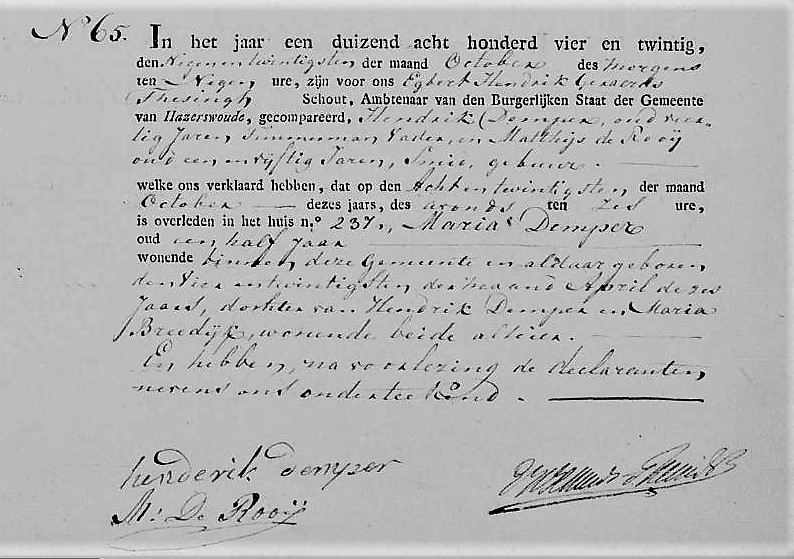 No 65.
In het jaar een duizend acht honderd vier en twintig,
den Negenentwintigsten der maand October des morgens
ten Negen ure, zijn voor ons Egbert Hendrik Gerardus
Thesingh Schout, Ambtenaar van den Burgerlijken Staat der Gemeente
van Hazerswoude, gecompareerd, Hendrik Demper, oud veer-
tig Jaren, Timmerman, Vader, en Matthijs de Rooij
oud een en vijftig Jaren, Smid, gebuur.
welke ons verklaard hebben, dat op den Achtentwintigsten der maand
October dezes jaars, des avonds ten zes ure,
is overleden in het huis n.o 237., Maria Demper
oud een half jaar
wonende binnen deze Gemeente en aldaar geboren
den Vier entwintigsten der maand April dezes
Jaars, dochter van Hendrik Demper en Maria
Breedijk, wonende beide alhier.
En hebben, na voorlezing de declaranten
nevens ons onderteekend.
henderik demper
M: De Rooij